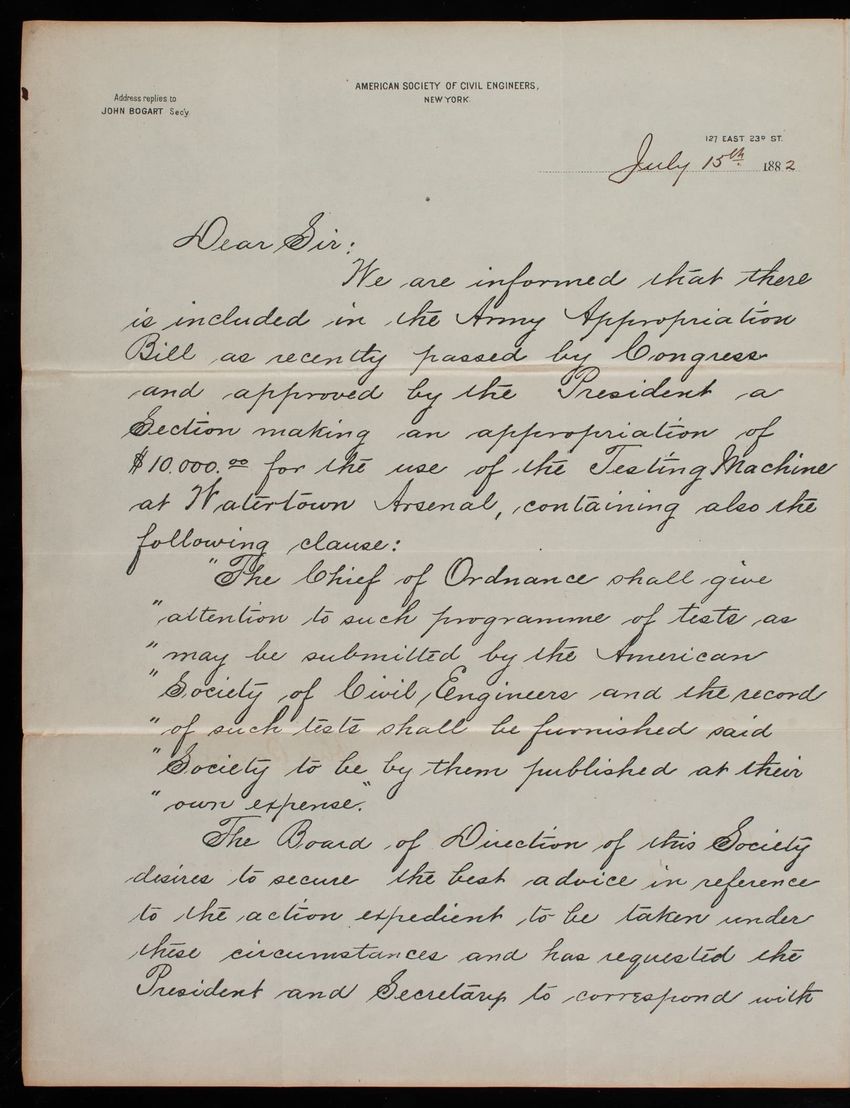 AMERICAN SOCIETY OF CIVIL ENGINEERS,
NEW YORK
Address replies to
JOHN BOGART Sec'y
127 EAST 23D ST.
July 15th 1882
Dear Sir:
We are informed that there
is included in the Army Appropriation
Bill as recently passed by Congress
and approved by the President a
Section making an appropriation of
$10.000.00 for the use of the Testing Machine
at Watertown Arsenal, containing also the
following clause:
"The Chief of Ordnance shall give
"attention to such programme of tests as
"may be submitted by the American
"Society of Civil Engineers and the record
"of such tests shall be furnished said
"Society to be by them published at their
"own expense."
The Board of Direction of this Society
desires to secure the best advice in reference
to the action expedient to be taken under
these circumstances and has requested the
President and Secretary to correspond with